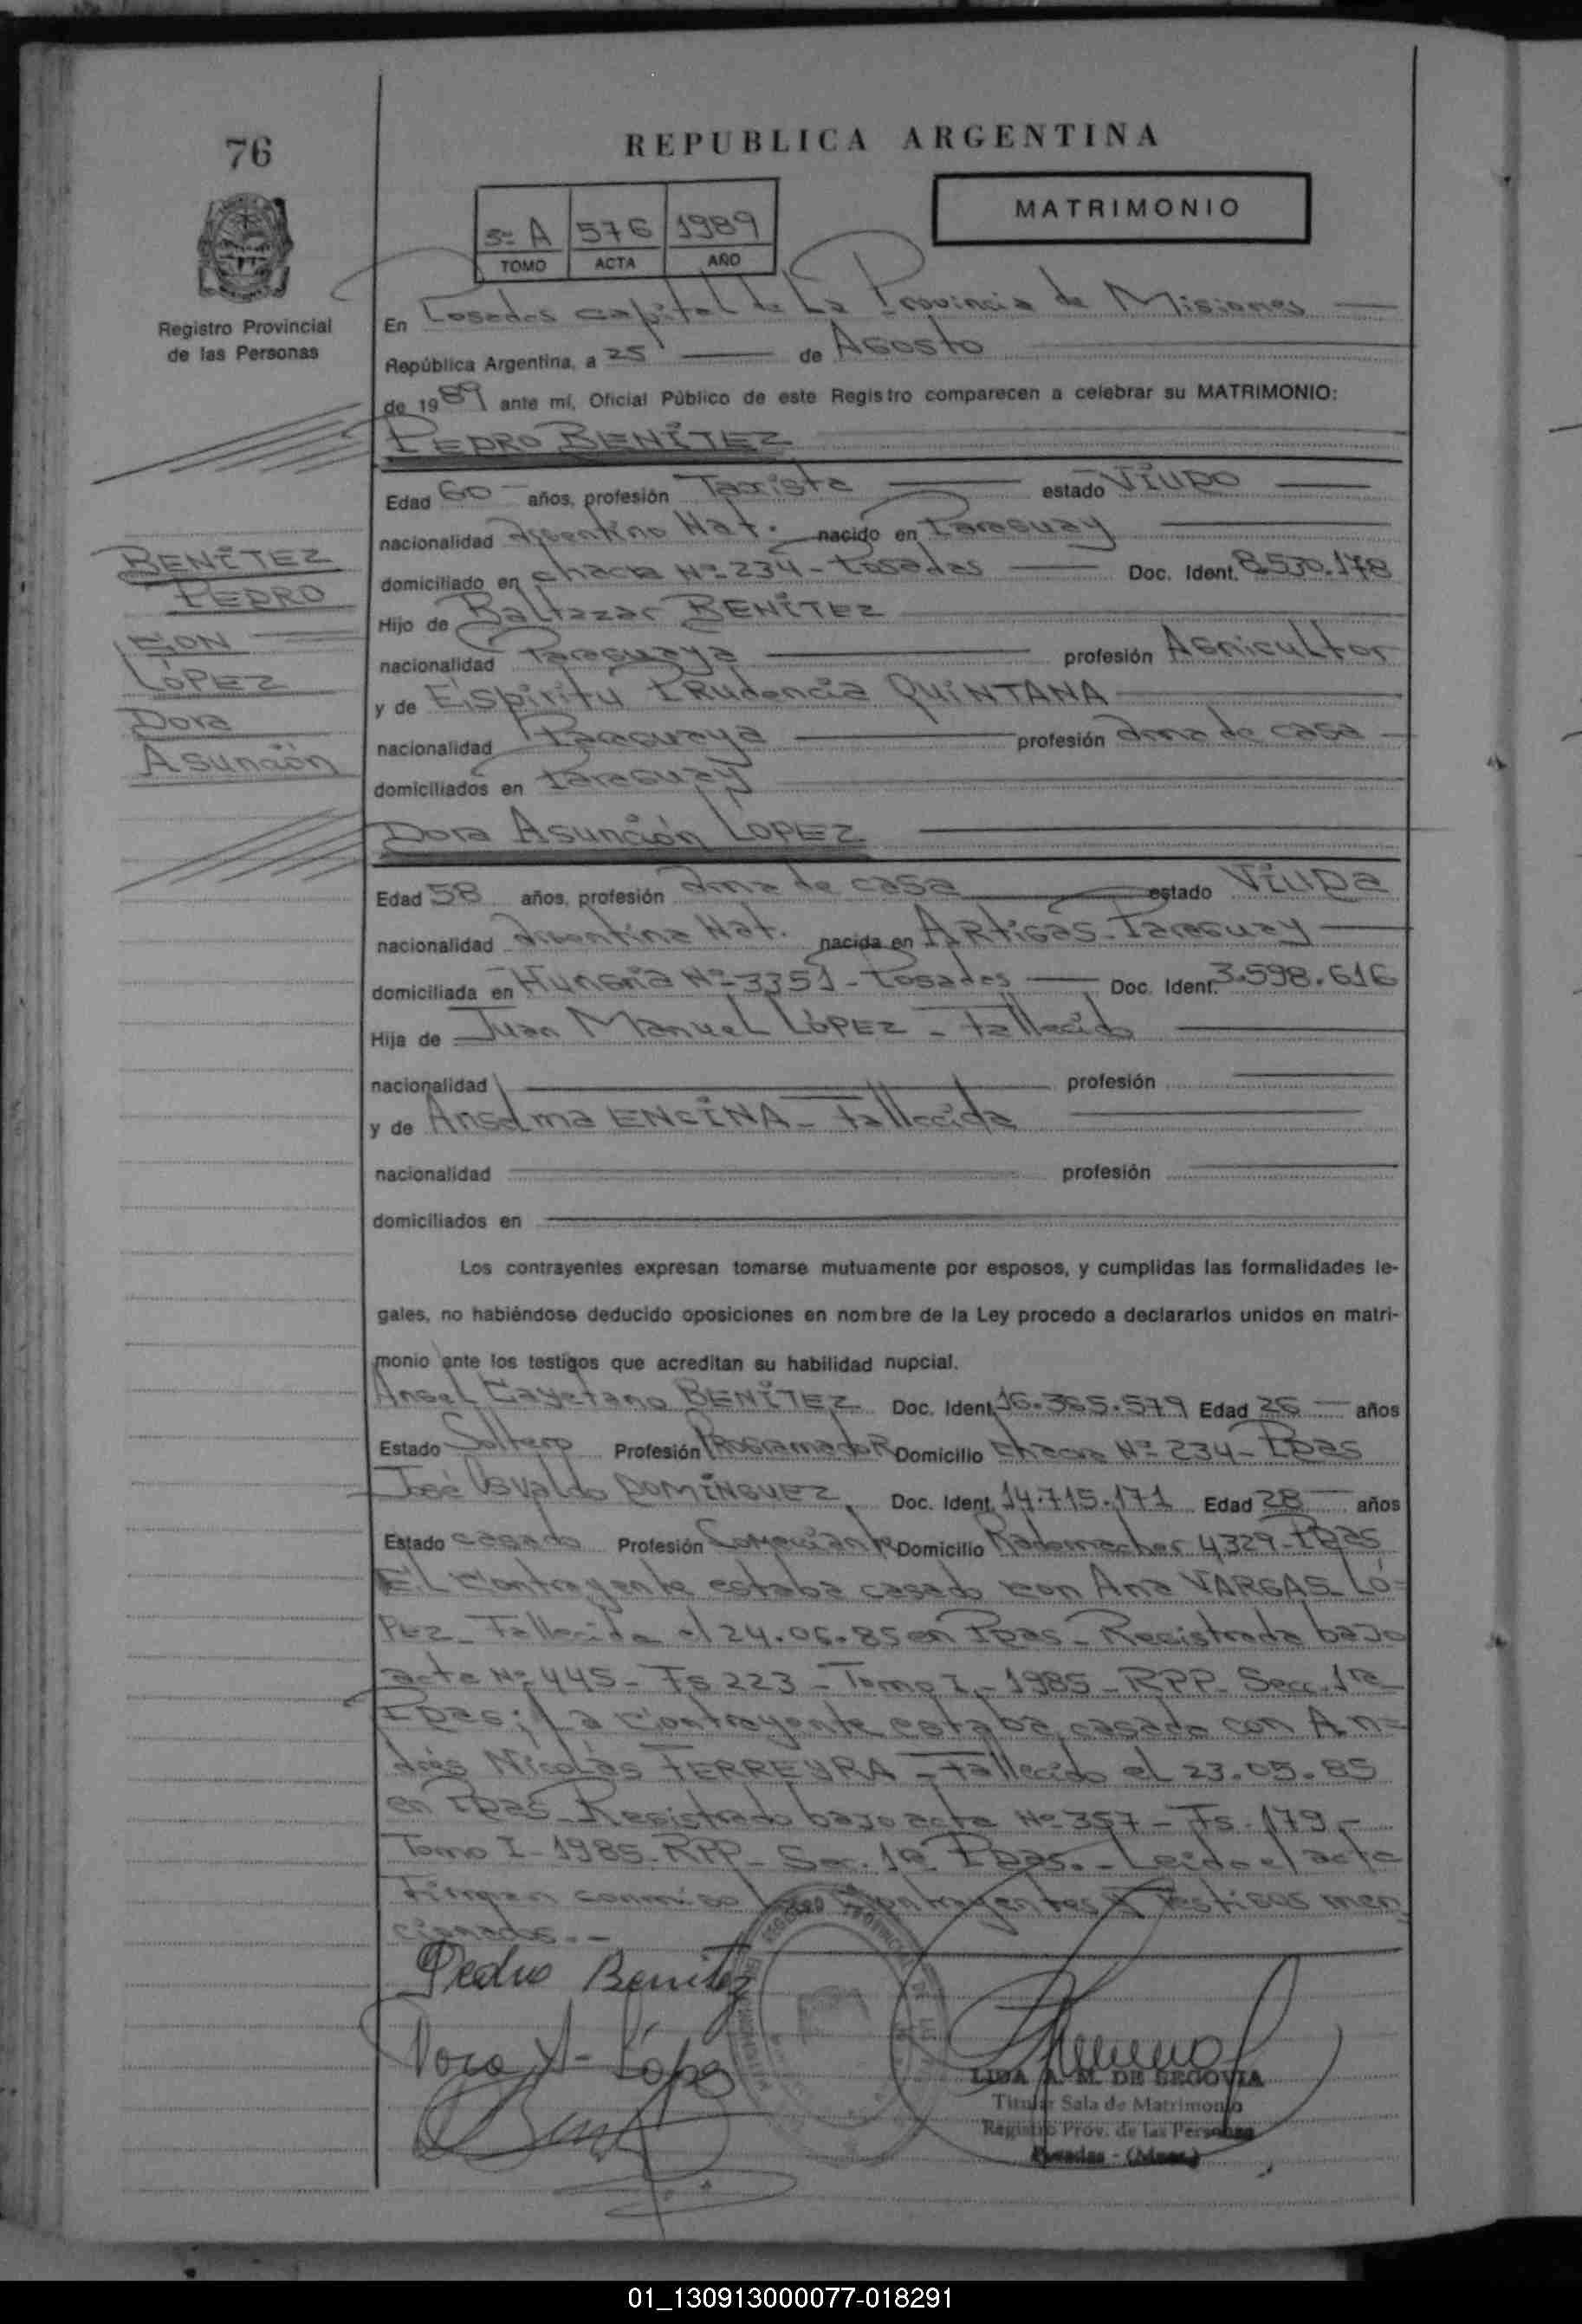 76
REPUBLICA ARGENTINA
MATRIMONIO
3º A 576 1989
TOMO ACTA AÑO
Registro Provincial
de las Personas
En Posadas capital de La Provincia de Misiones
República Argentina, a 25 de Agosto
de 1989 ante mí, Oficial Público de este Registro comparecen a celebrar su MATRIMONIO:
PEDRO BENÍTEZ
Edad 60 años, profesión Taxista estado Viudo
nacionalidad Argentino Nat. nacido en Paraguay
domiciliado en chacra Nº 234 - Posadas Doc. Ident. 8.530.178
Hijo de Baltazar BENÍTEZ
nacionalidad Paraguaya profesión Agricultor
y de Espíritu Prudencia QUINTANA
nacionalidad Paraguaya profesión ama de casa
domiciliados en Paraguay
BENÍTEZ
PEDRO
CON
LÓPEZ
Dora
Asunción
Dora Asunción LOPEZ
Edad 58 años, profesión ama de casa estado Viuda
nacionalidad Argentina Nat. nacida en Artigas - Paraguay
domiciliada en Hungría Nº 3351 - Posadas Doc. Ident. 3.598.616
Hija de Juan Manuel LÓPEZ - Fallecido
nacionalidad profesión
y de Anselma ENCINA - Fallecida
nacionalidad profesión
domiciliados en
Los contrayentes expresan tomarse mutuamente por esposos, y cumplidas las formalidades le-
gales, no habiéndose deducido oposiciones en nombre de la Ley procedo a declararlos unidos en matri-
monio ante los testigos que acreditan su habilidad nupcial.
Angel Cayetano BENÍTEZ Doc. Ident. 16.365.579 Edad 26 años
Estado Soltero Profesión Programador Domicilio chacra Nº 234 - Pdas
José Osvaldo DOMÍNGUEZ Doc. Ident. 14.715.171 Edad 28 años
Estado casado Profesión Comerciante Domicilio Rademacher 4329 - Pdas
El Contrayente estaba casado con Ana VARGAS LÓ=
PEZ - Fallecida el 24.06.85 en Pdas - Registrada bajo
acta Nº 445 - Fs 223 - Tomo I - 1985 - RPP - Secc. 1ª
Pdas; La Contrayente estaba casada con An=
drés Nicolás FERREYRA - Fallecido el 23.05.85
en Pdas - Registrado bajo acta Nº 357 - Fs. 179 -
Tomo I - 1985 - RPP - Sec. 1ª Pdas. - Leída el acta
Firman conmigo Contrayentes y Testigos men
cionados. -
Pedro Benitez
Dora A- López
LIDA A. M. DE SEGOVIA
Titular Sala de Matrimonio
Registro Prov. de las Personas
Posadas - (Mnes.)
01_130913000077-018291